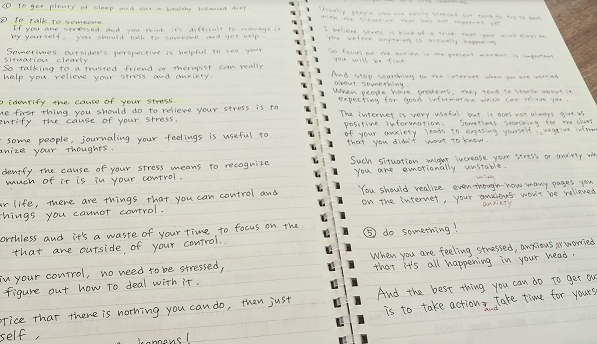 ① To get plenty of sleep and eat a healthy balanced diet
② To talk to someone
If you are stressed and you think it's difficult to manage it
by yourself, you should talk to someone and get help.
Sometimes outsider's perspective is helpful to see your
situation clearly.
So talking to a trusted friend or therapist can really
help you relieve your stress and anxiety.
o identify the cause of your stress.
he first thing you should do to relieve your stress is to
entify the cause of your stress.
r some people, journaling your feelings is useful to
anize your thoughts.
dentify the cause of your stress means to recognize
much of it is in your control.
ur life, there are things that you can control and
things you cannot control.
orthless and it's a waste of your time to focus on the
that are outside of your control.
in your control, no need to be stressed,
figure out how to deal with it.
otice that there is nothing you can do, then just
self,
happens!
Usually people who are easily stressed out tend to try to deal
with the situation that has not happened yet.
I believe stress is kind of a trick that your mind plays on
you before anything is actually happening.
So focus on the action in the present moment is important
you will be fine.
And stop searching on the internet when you are worried
about something.
When people have problems, they tend to search about it
expecting for good information which can relieve you.
The internet is very useful but it does not always give us
positive information. Sometimes searching for the clues
of your anxiety leads to exposing yourself negative inform
that you didn't want to know.
Such situation might increase your stress or anxiety wh
you are emotionally unstable.
You should realize even though how many pages you
on the internet, your anxious won't be relieved
anxiety
⑤ do something!
When you are feeling stressed, anxious or worried
that it's all happening in your head.
And the best thing you can do to get ou
is to take action and Take time for yours